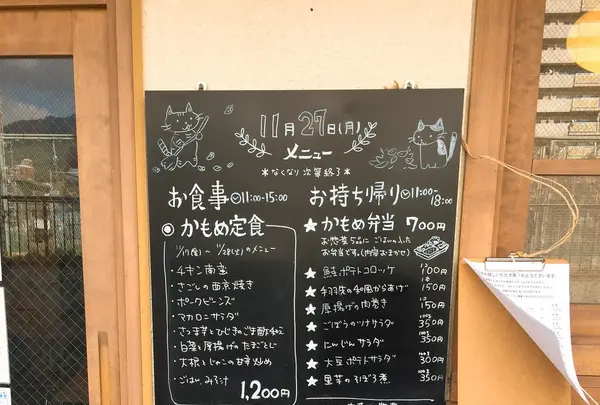 11月27日(月)
メニュー
*なくなり次第終了*
お食事 11:00-15:00
かもめ定食
11/17(金)~11/28(火)のメニュー
・チキン南蛮
・さごしの西京焼き
・ポークビーンズ
・マカロニサラダ
・さつま芋とひじきのごま酢和え
・白菜と厚揚げのたまごとじ
・大根とじゃこの甘辛炒め
・ごはん、みそ汁
1,200円
お持ち帰り 11:00-18:00
★かもめ弁当 700円
お惣菜5品にごはんの入った
お弁当です。(内容おまかせ)
★鮭ポテトコロッケ 100円
★手羽先の和風から揚げ 150円
★厚揚げの肉巻き 150円
★ごぼうのツナサラダ 350円
★にんじんサラダ 350円
★大豆ポテトサラダ 300円
★里芋のそぼろ煮 350円